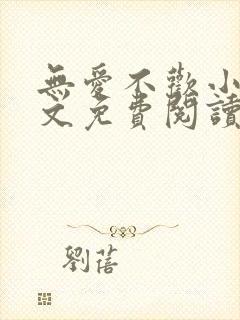 無愛不歡小
文免費閱讀
劉蓓